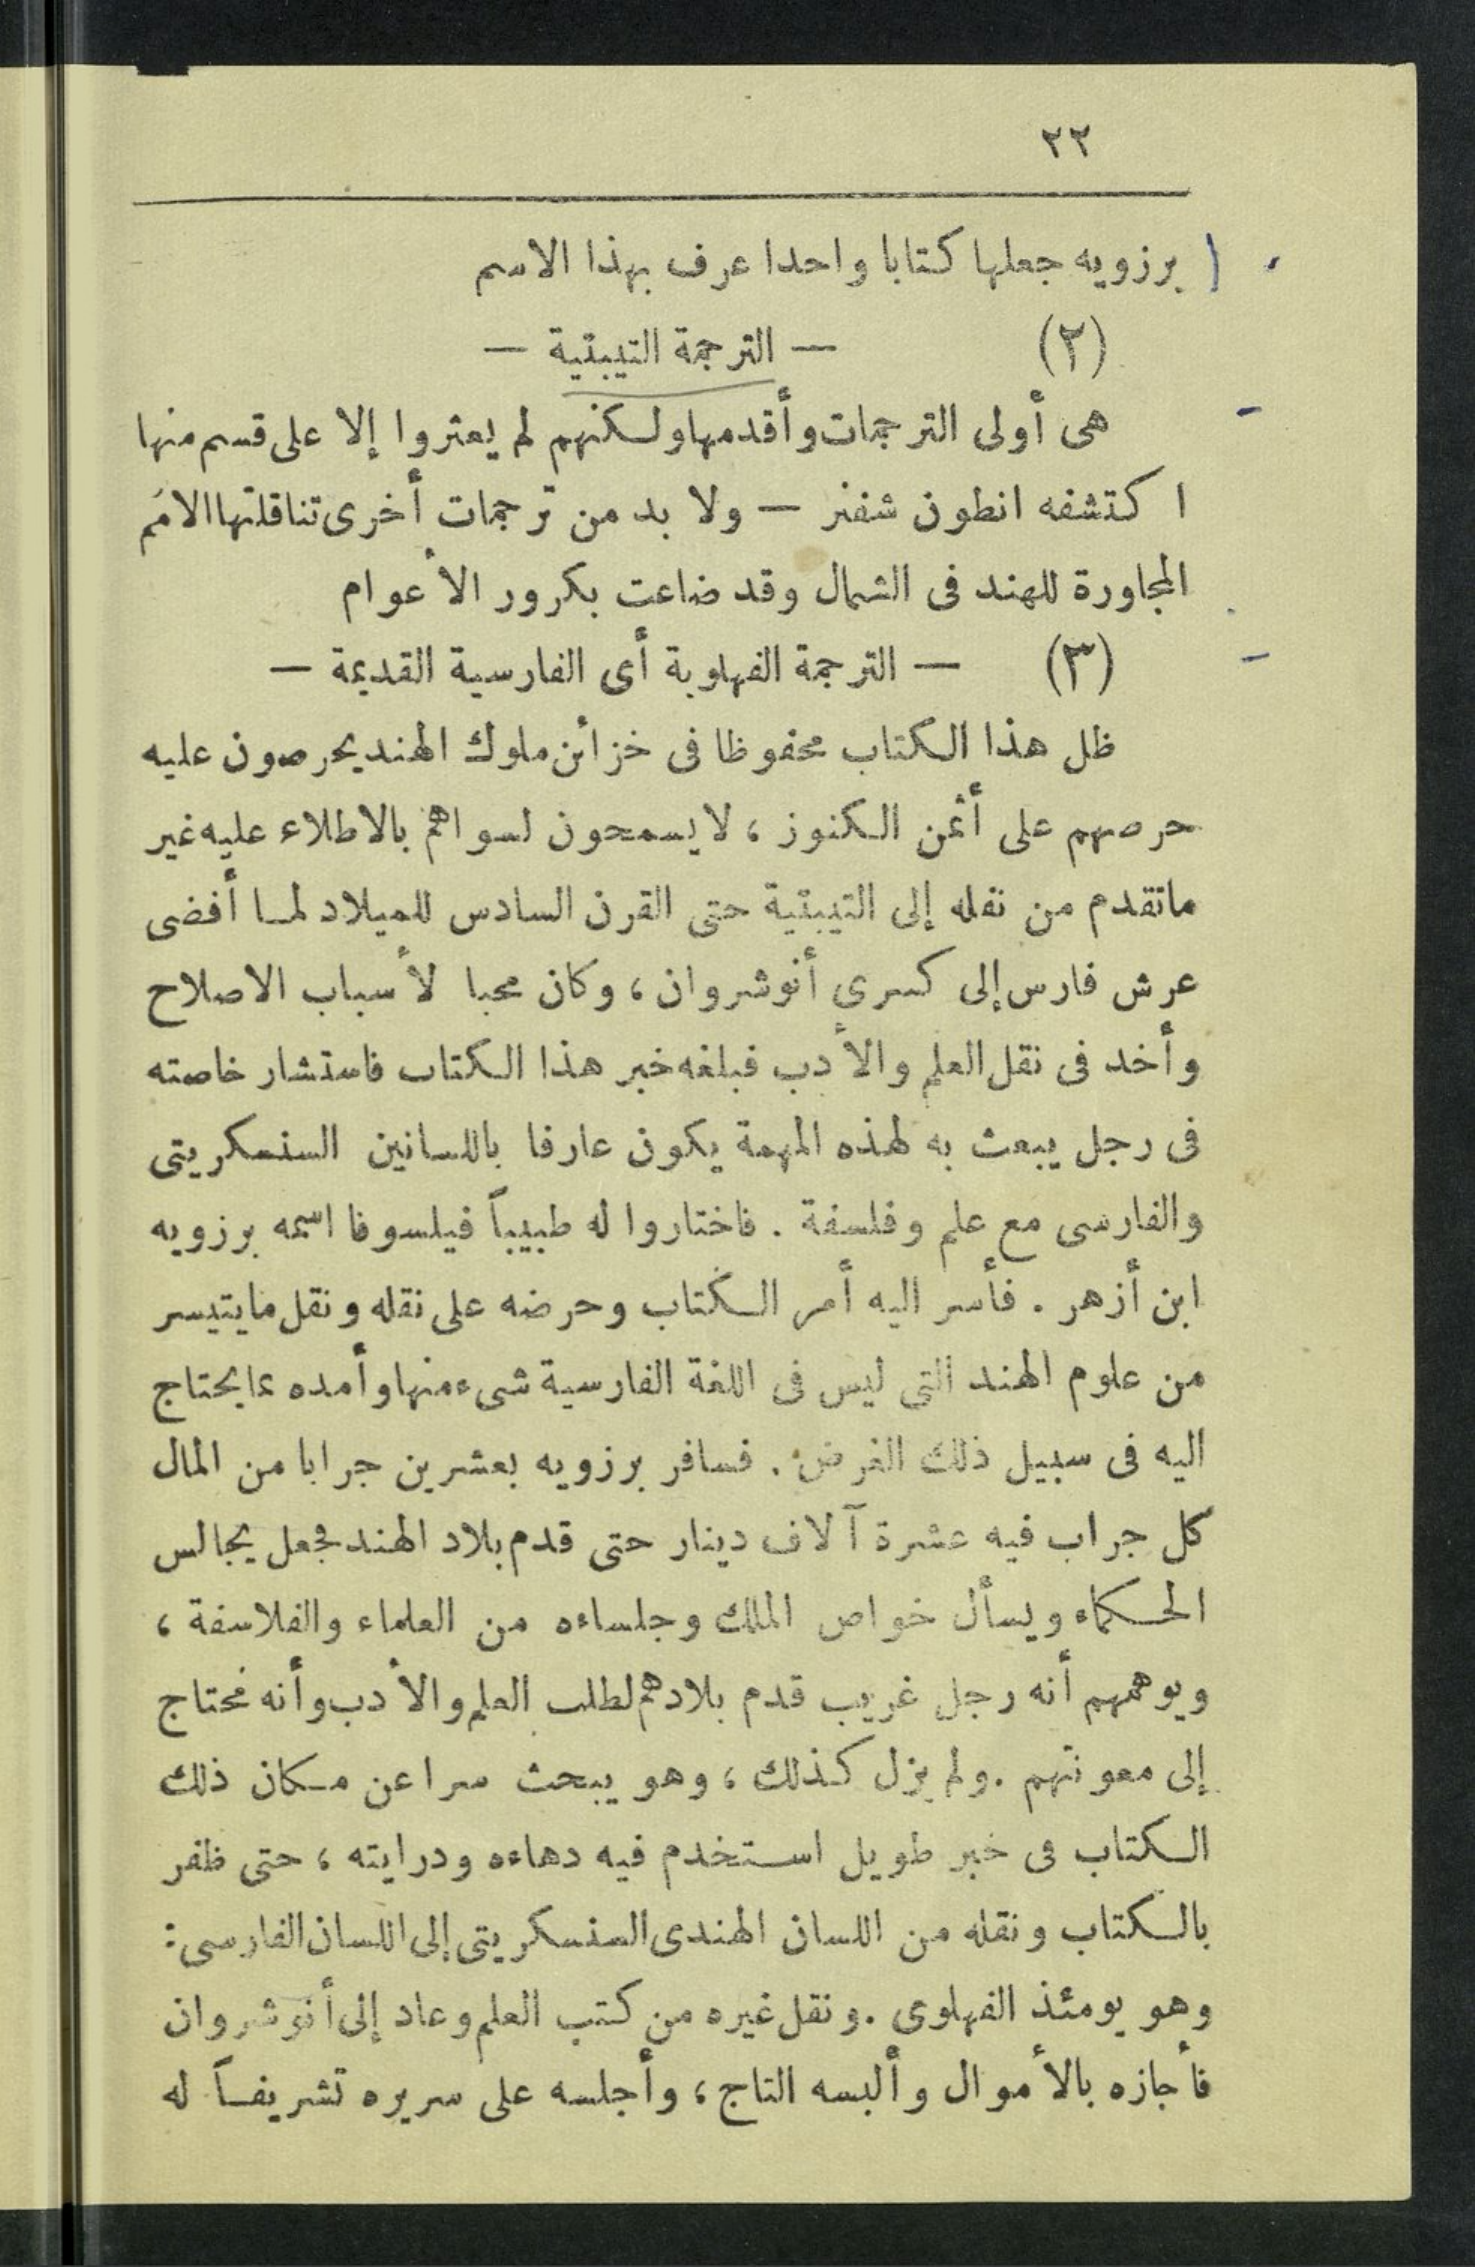 ٢٢
برزويه جعلها كتابا واحدا عرف بهذا الاسم
(٢) — الترجمة التيبتية —
هى أولى الترجمات وأقدمها ولكنهم لم يعثروا إلا على قسم منها
اكتشفه انطون شفنر — ولا بد من ترجمات أخرى تناقلتها الامم
المجاورة للهند فى الشمال وقد ضاعت بكرور الأعوام
(٣) — الترجمة الفهلوية أى الفارسية القديمة —
ظل هذا الكتاب محفوظا فى خزائن ملوك الهند يحرصون عليه
حرصهم على أثمن الكنوز ، لا يسمحون لسواهم بالاطلاء عليه غير
ما تقدم من نقله إلى التيبتية حتى القرن السادس للميلاد لما أفضى
عرش فارس إلى كسرى أنوشروان ، وكان محبا لأسباب الاصلاح
وأخد فى نقل العلم والأدب فبلغه خبر هذا الكتاب فاستشار خاصته
فى رجل يبعث به لهذه المهمة يكون عارفا باللسانين السنسكريتى
والفارسى مع علم وفلسفة . فاختاروا له طبيباً فيلسوفا اسمه برزويه
ابن أزهر . فأسر اليه أمر الكتاب وحرضه على نقله ونقل ما يتيسر
من علوم الهند التى ليس فى اللغة الفارسية شىء منها وأمده بما يحتاج
اليه فى سبيل ذلك الغرض . فسافر برزويه بعشرين جرابا من المال
كل جراب فيه عشرة آلاف دينار حتى قدم بلاد الهند فجعل يجالس
الحكماء ويسأل خواص الملك وجلساءه من العلماء والفلاسفة ،
ويوهمهم أنه رجل غريب قدم بلادهم لطلب العلم والأدب وأنه محتاج
إلى معونتهم . ولم يزل كذلك ، وهو يبحث سرا عن مكان ذلك
الكتاب فى خبر طويل استخدم فيه دهاءه ودرايته ، حتى ظفر
بالكتاب ونقله من اللسان الهندى السنسكريتى إلى اللسان الفارسى :
وهو يومئذ الفهلوى . ونقل غيره من كتب العلم وعاد إلى أنوشروان
فأجازه بالأموال وألبسه التاج ، وأجلسه على سريره تشريفاً له